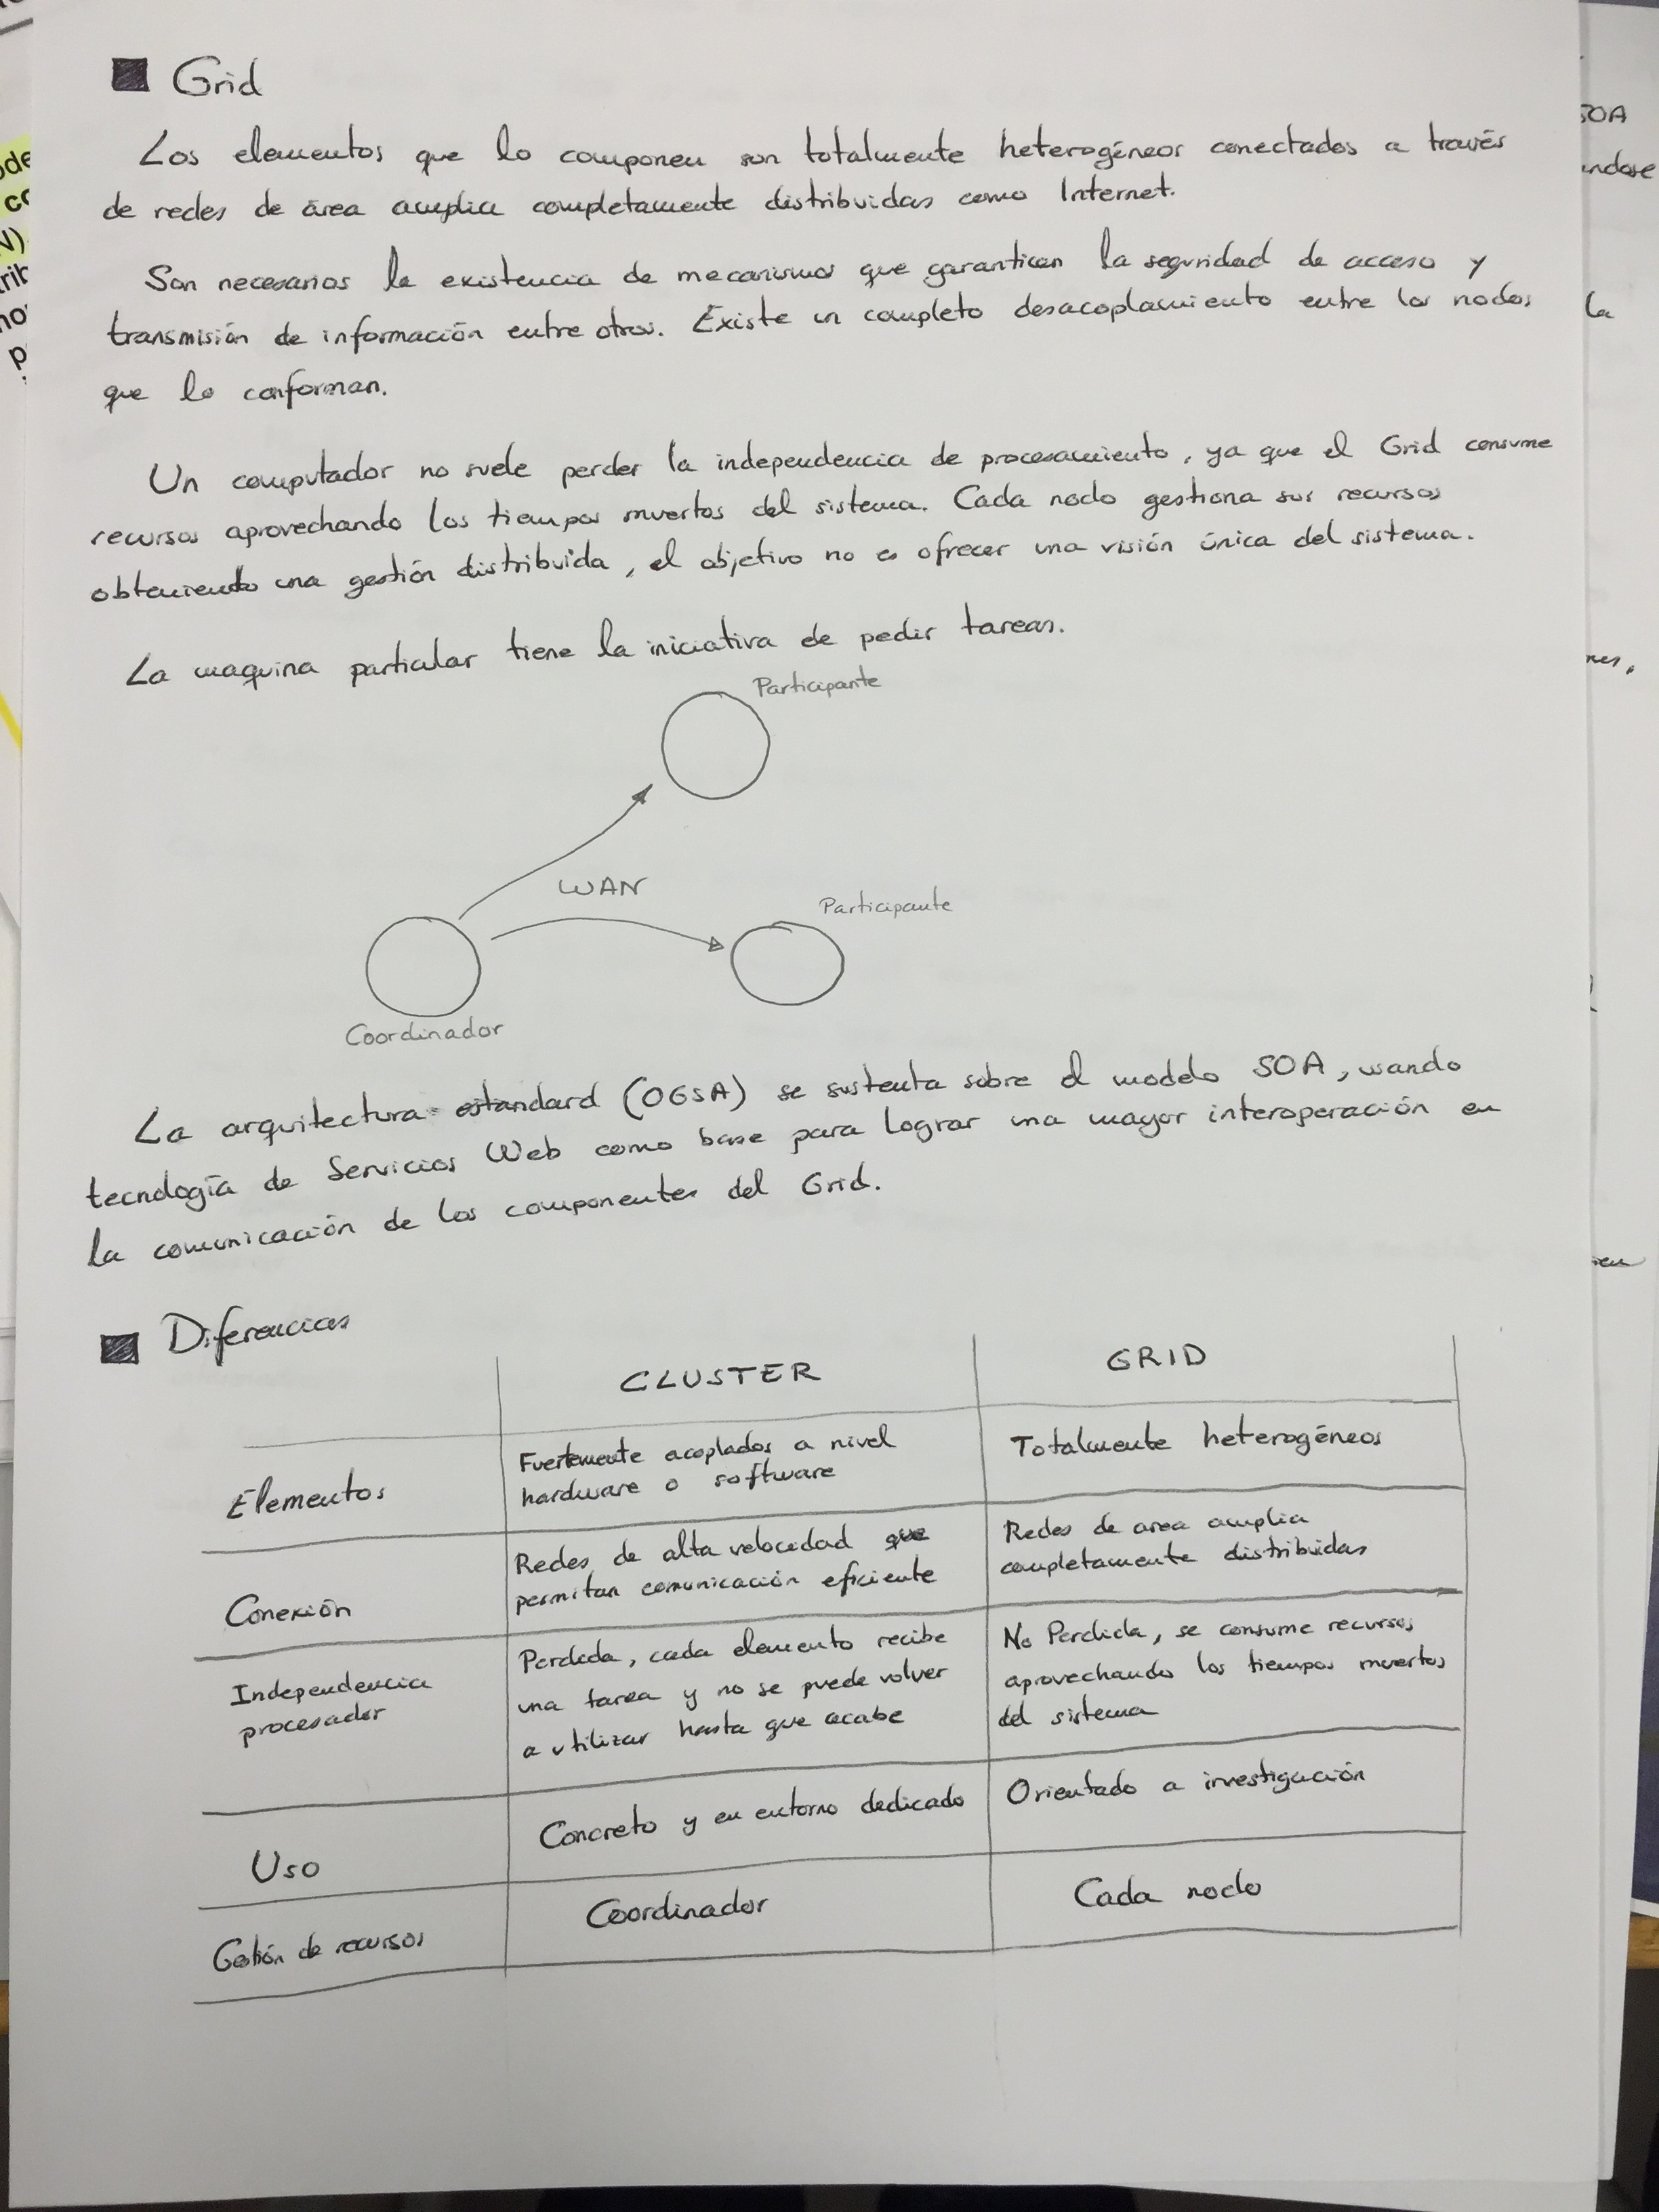 Grid
Los elementos que lo componen son totalmente heterogéneos conectados a través
de redes de área amplia completamente distribuidas como Internet.
Son necesarios la existencia de mecanismos que garanticen la seguridad de acceso y
transmisión de información entre otros. Existe un completo desacoplamiento entre los nodos
que lo conforman.
Un computador no suele perder la independencia de procesamiento, ya que el Grid consume
recursos aprovechando los tiempos muertos del sistema. Cada nodo gestiona sus recursos
obteniendo una gestión distribuida, el objetivo no es ofrecer una visión única del sistema.
La maquina particular tiene la iniciativa de pedir tareas.
Participante
WAN
Participante
Coordinador
La arquitectura estandard (OGSA) se sustenta sobre el modelo SOA, usando
tecnología de Servicios Web como base para lograr una mayor interoperación en
la comunicación de los componentes del Grid.
Diferencias
CLUSTER GRID
Elementos
Fuertemente acoplados a nivel
hardware o software
Totalmente heterogéneos
Conexión
Redes de alta velocidad que
permitan comunicación eficiente
Redes de area amplia
completamente distribuidas
Independencia
procesador
Perdida, cada elemento recibe
una tarea y no se puede volver
a utilizar hasta que acabe
No Perdida, se consume recursos
aprovechando los tiempos muertos
del sistema
Uso
Concreto y en entorno dedicado
Orientado a investigación
Gestión de recursos
Coordinador
Cada nodo
SOA
la